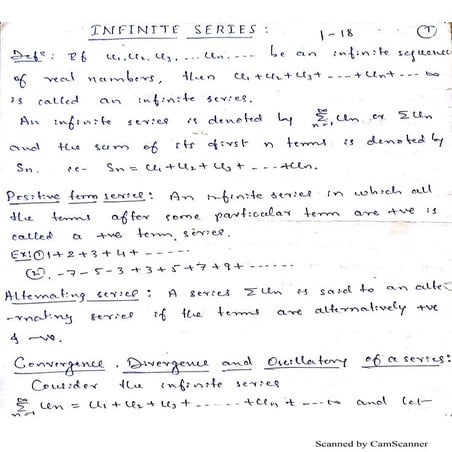 INFINITE SERIES:
1-18
1
Defn: If u₁, u₂, u₃, ... un, .... be an infinite sequence
of real numbers, then u₁+u₂+u₃+ ....+un+.... ∞
is called an infinite series.
An infinite series is denoted by ∞Σn=1 un or Σun
and the sum of its first n terms is denoted by
Sn. ie- Sn = u₁+u₂+u₃+ .....+un.
Positive term series: An infinite series in which all
the terms after some particular term are +ve is
called a +ve term series.
Ex: ① 1+2+3+4+ ------
②. -7-5-3+3+5+7+9+ ------
Alternating series: A series Σun is said to an alte-
-rnating series if the terms are alternatively +ve
& -ve.
Convergence, Divergence and Oscillatory of a series:
Consider the infinite series
∞Σn=1 un = u₁+u₂+u₃+ ......+un+ ...∞ and let-
Scanned by CamScanner